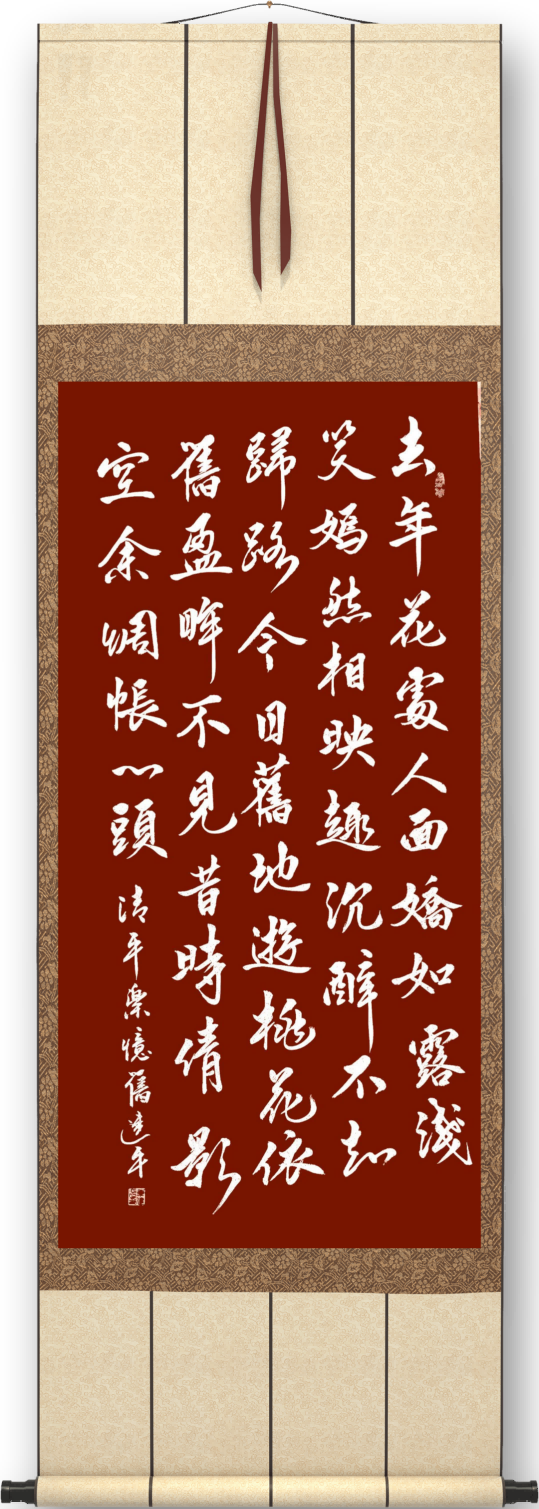 去年花處人面嬌如露淺
笑嫣然相映趣沉醉不知
歸路今日舊地遊桃花依
舊盈眸不見昔時倩影
空余惆帳心頭
清平樂憶舊達平